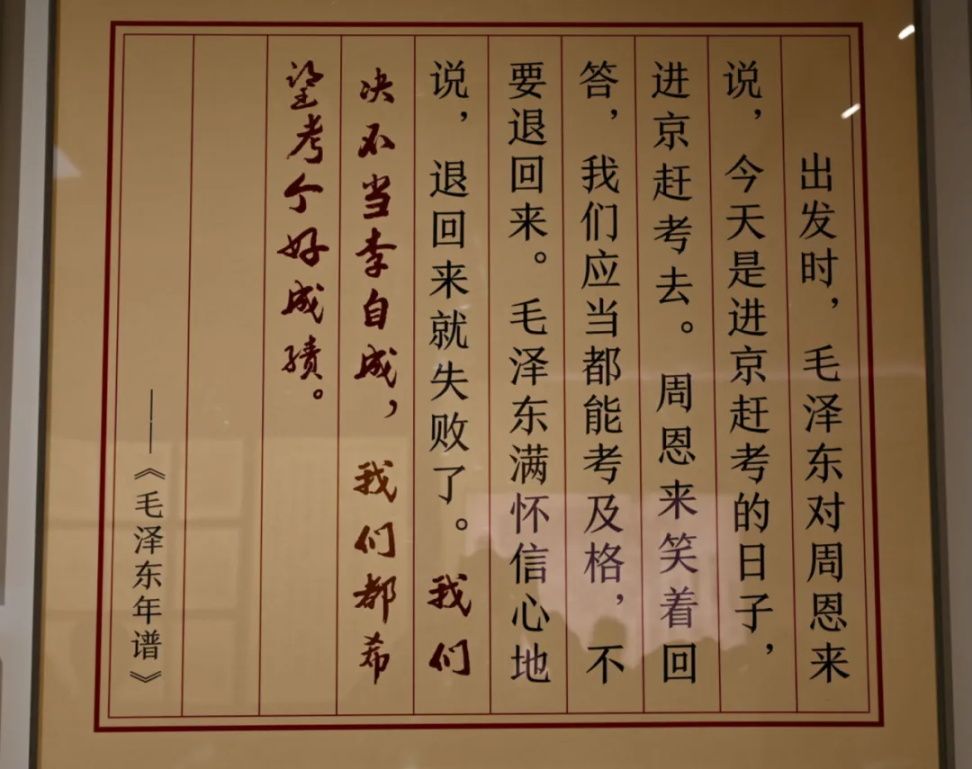 出发时，毛泽东对周恩来
说，今天是进京赶考的日子，
进京赶考去。周恩来笑着回
答，我们应当都能考及格，不
要退回来。毛泽东满怀信心地
说，退回来就失败了。我们
决不当李自成，我们都希
望考个好成绩。
——《毛泽东年谱》